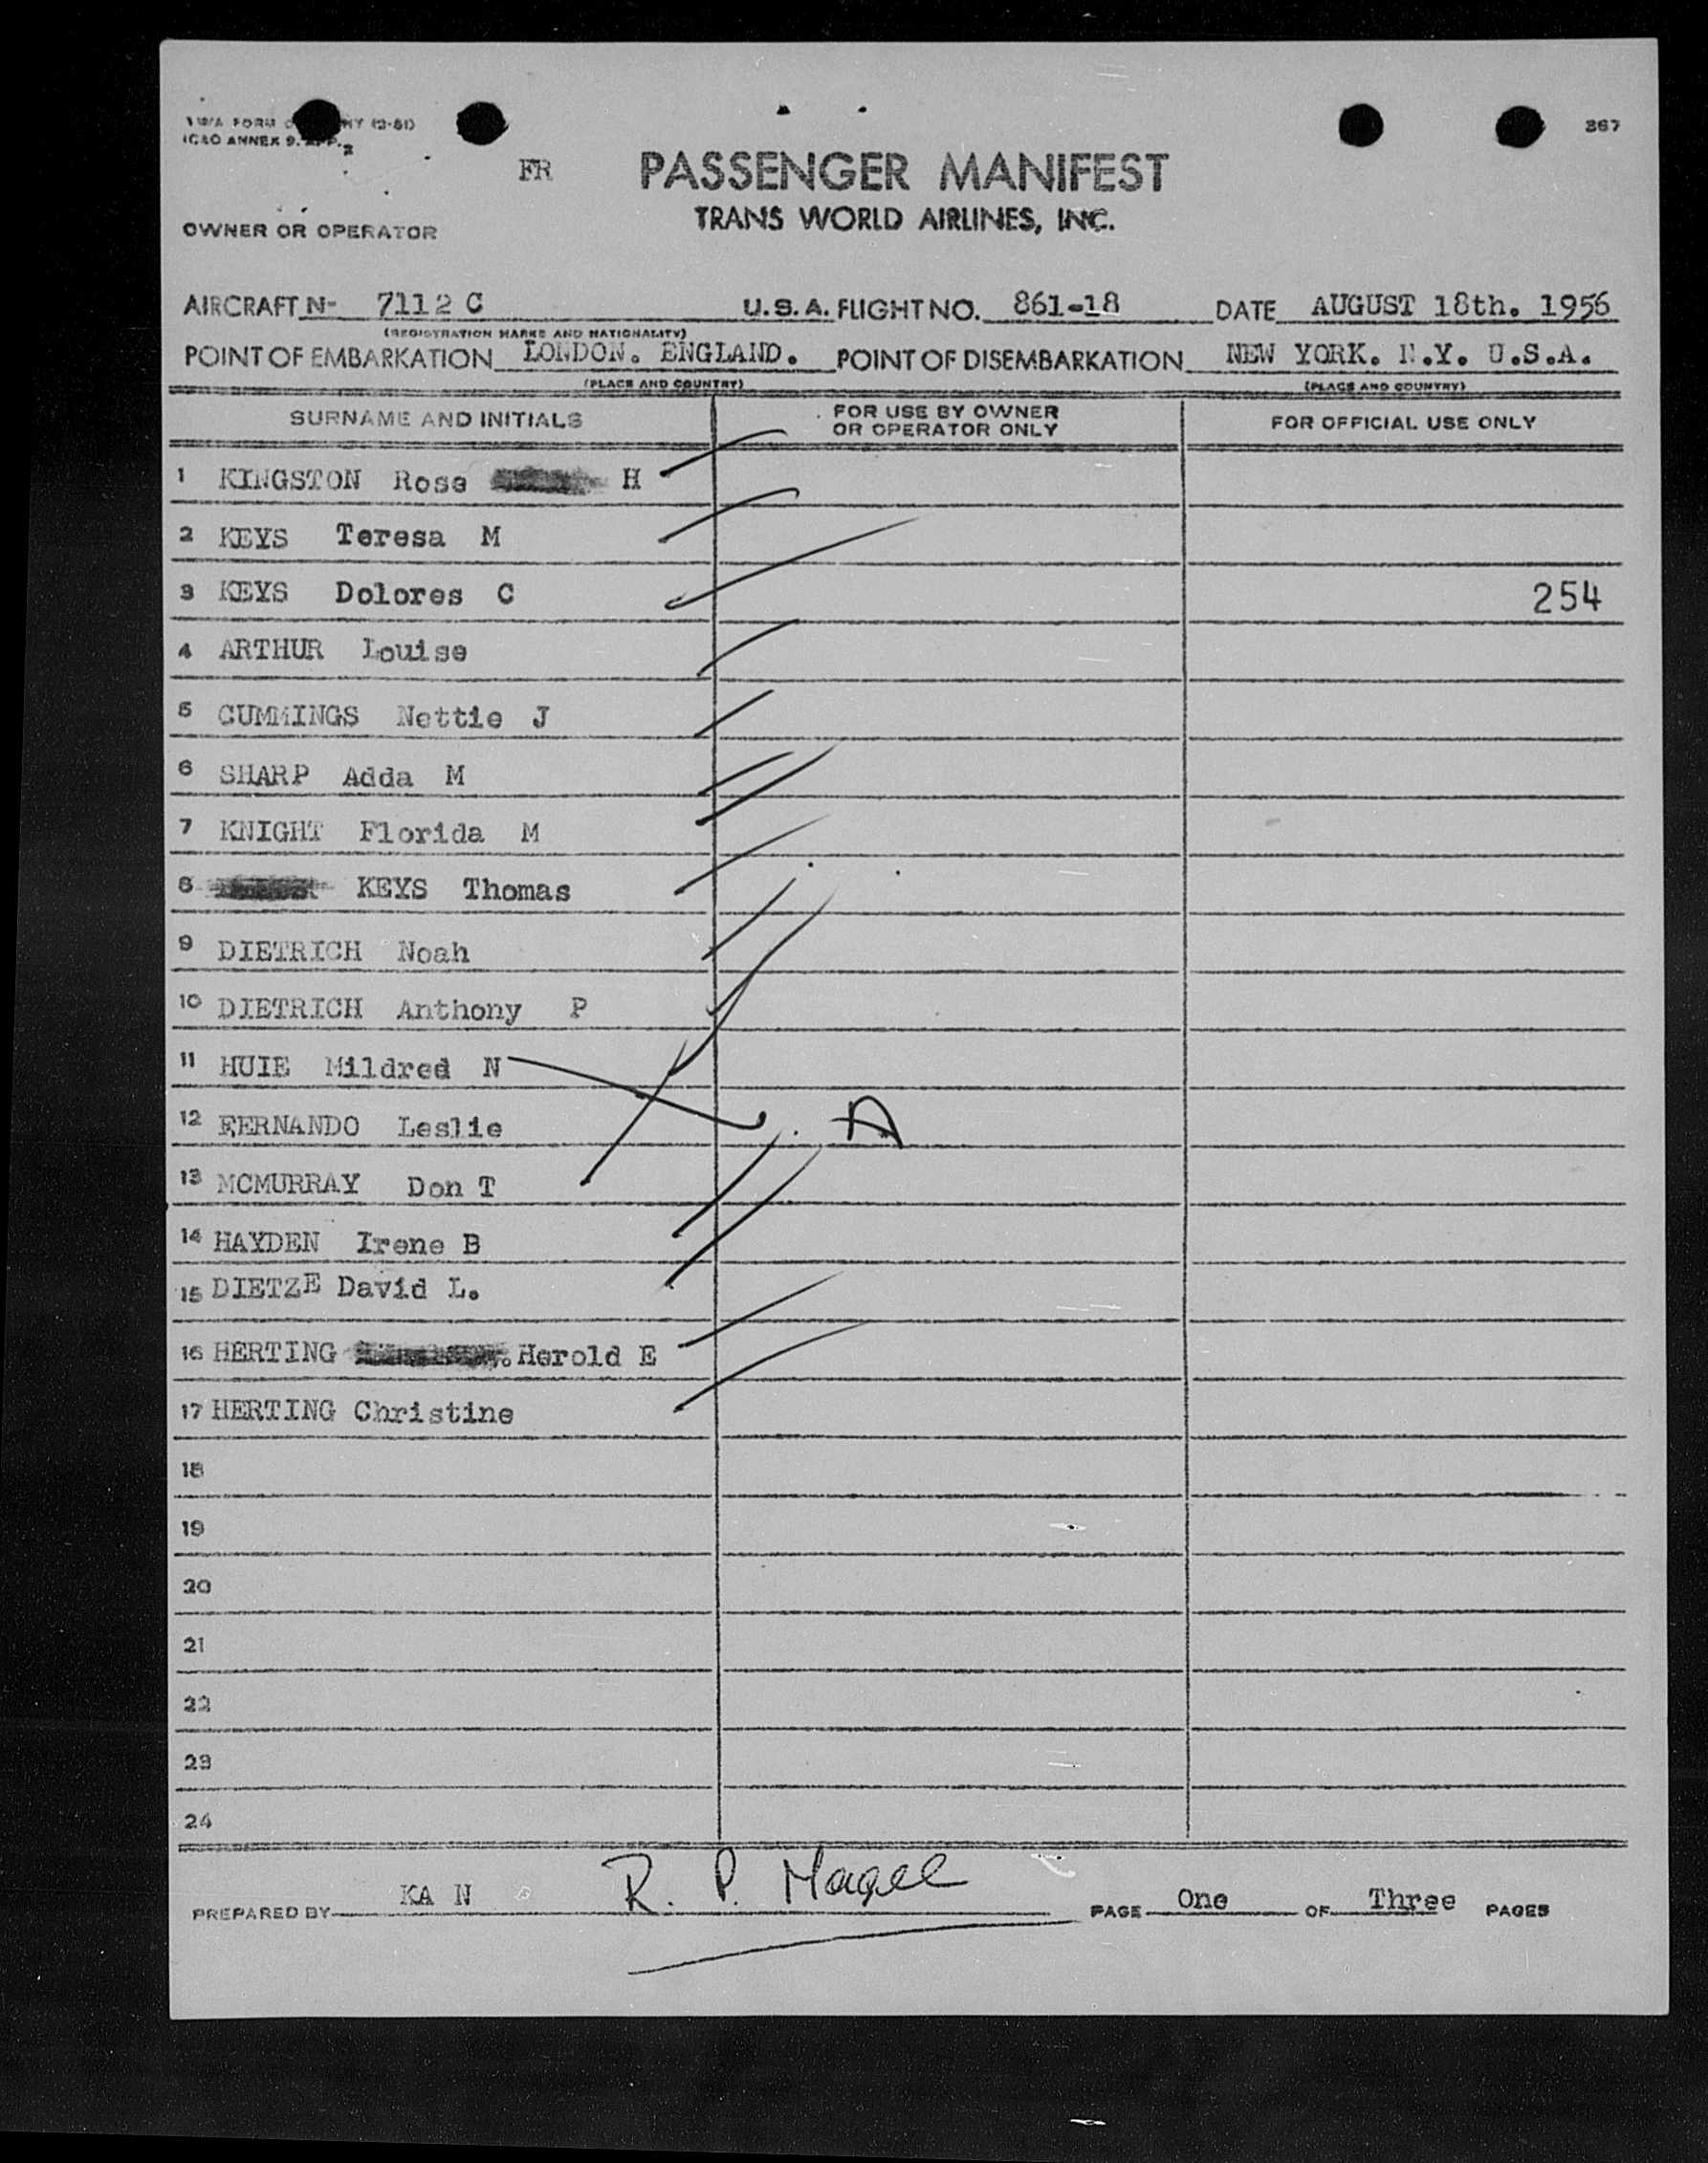 TWA FORM (2-51) 367
ICAO ANNEX 9. APP. 2
FR PASSENGER MANIFEST
TRANS WORLD AIRLINES, INC.
OWNER OR OPERATOR
AIRCRAFT N- 7112 C U.S.A. FLIGHT NO. 861-18 DATE AUGUST 18th. 1956
(REGISTRATION MARKS AND NATIONALITY)
POINT OF EMBARKATION LONDON. ENGLAND. POINT OF DISEMBARKATION NEW YORK. N.Y. U.S.A.
(PLACE AND COUNTRY) (PLACE AND COUNTRY)
SURNAME AND INITIALS FOR USE BY OWNER OR OPERATOR ONLY FOR OFFICIAL USE ONLY
1 KINGSTON Rose H
2 KEYS Teresa M
3 KEYS Dolores C 254
4 ARTHUR Louise
5 CUMMINGS Nettie J
6 SHARP Adda M
7 KNIGHT Florida M
8 KEYS Thomas
9 DIETRICH Noah
10 DIETRICH Anthony P
11 HUIE Mildred N
12 FERNANDO Leslie A
13 MCMURRAY Don T
14 HAYDEN Irene B
15 DIETZE David L.
16 HERTING Herold E
17 HERTING Christine
18
19
20
21
22
23
24
PREPARED BY KA N R. P. Magee PAGE One OF Three PAGES